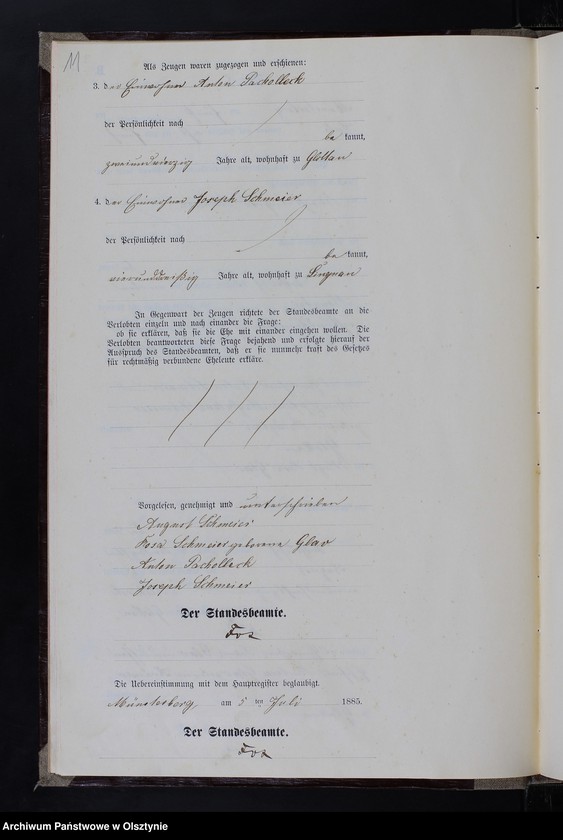 11
Als Zeugen waren zugezogen und erschienen:
3. der Einwohner Anton Packolleck
der Persönlichkeit nach
be kannt,
zweiundvierzig Jahre alt, wohnhaft zu Glottau
4. der Einwohner Joseph Schmeier
der Persönlichkeit nach
be kannt,
vierunddreißig Jahre alt, wohnhaft zu Lingnau
In Gegenwart der Zeugen richtete der Standesbeamte an die
Verlobten einzeln und nach einander die Frage:
ob sie erklären, daß sie die Ehe mit einander eingehen wollen. Die
Verlobten beantworteten diese Frage bejahend und erfolgte hierauf der
Ausspruch des Standesbeamten, daß er sie nunmehr kraft des Gesetzes
für rechtmäßig verbundene Eheleute erkläre.
Vorgelesen, genehmigt und unterschrieben
August Schmeier
Rosa Schmeier geborene Glav
Anton Packolleck
Joseph Schmeier
Der Standesbeamte.
Fox
Die Uebereinstimmung mit dem Hauptregister beglaubigt.
Münsterberg, am 5 ten Juli 1885.
Der Standesbeamte.
Fox
Archiwum Państwowe w Olsztynie